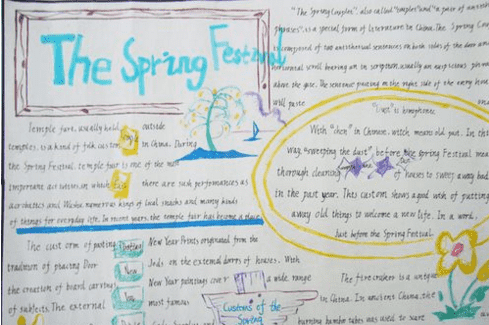 The Spring Festival
"The Spring Couplet", also called "couplet" and "a pair of
phrases", is a special form of literature in China. The Spring
is composed of two antithetical sentences on both sides of the door and
horizontal scroll bearing an inscription, usually an auspicious
above the gate. The sentence pasting on the right side of the
will paste
"Dust" is homophonic
With "chen" in Chinese, witch, means old past. In
way, "sweeping the dust", before the spring Festival mea
thorough cleaning of houses to sweep away bad
in the past year. This custom shows a good wish of putting
away old things to welcome a new life. In a word,
Just before the Spring Festival.
Temple fair, usually held outside
temples, is a kind of folk custom in China. During
the Spring Festival, temple fair is one of the most
important activities, in which there are such performances as
acrobatics and numerous kings of local snacks and many kinds
of things for everyday life. In recent years, the temple fair has become a place
The custorm of pasting New Year Prints originated from the
tradition of placing Door Jods on the external doors of houses. With
the creation of board carvings, New Year paintings cover a wide range
of subjects. The external most famous
Customs of the
Spring
The fire crakers is a unique
in China. In ancient China, the
burning bamboo tubes was used to scare